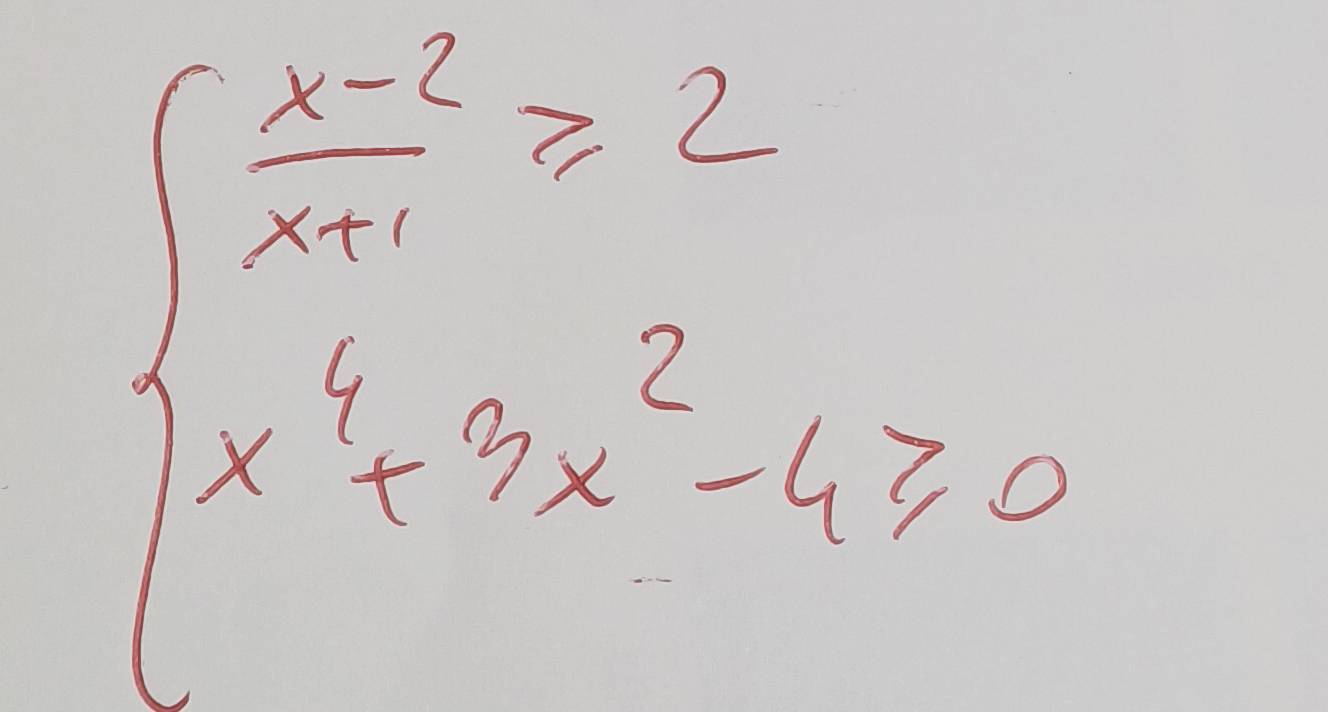 { (x-2)/(x+1) ≥ 2
x⁴ + 3x² - 4 ≥ 0